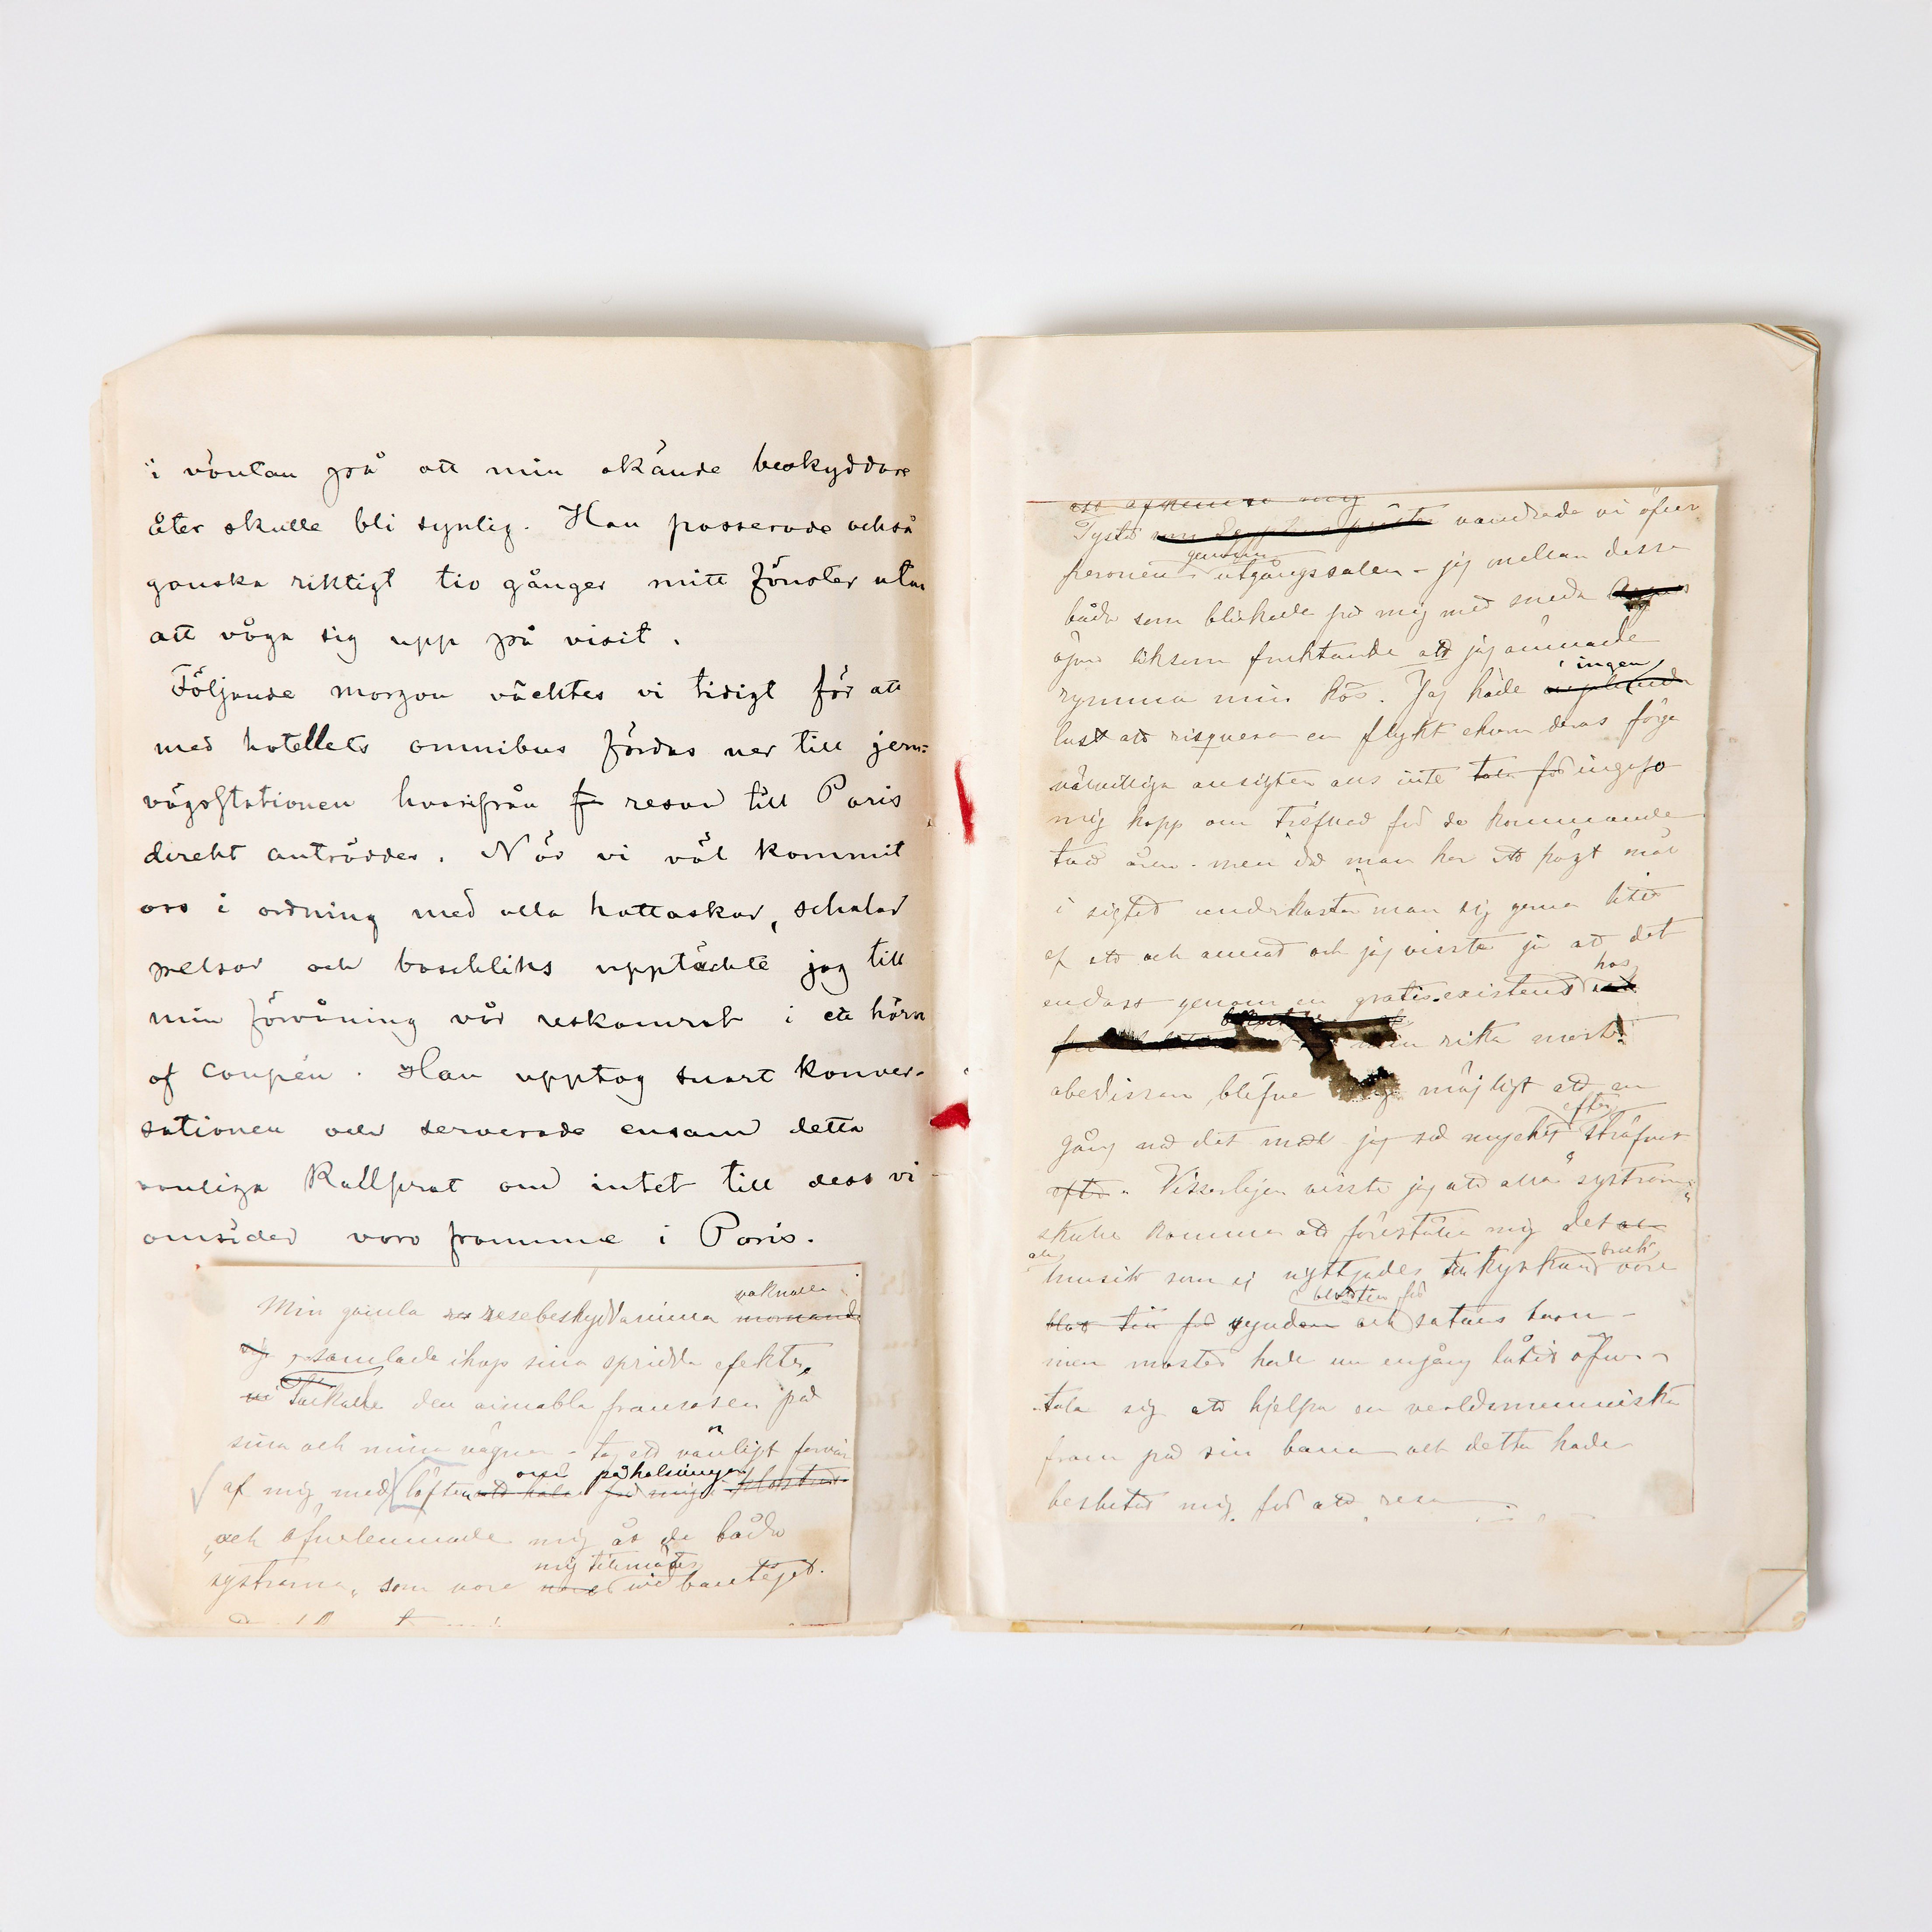 i väntan på att min okände beskyddare
åter skulle bli synlig. Han passerade också
ganska riktigt tio gånger mitt fönster utan
att våga sig upp på visit.
Följande morgon väcktes vi tidigt för att
med hotellets omnibus fördas ner till jern=
vägsstationen hvarifrån f resan till Paris
direkt anträddes. När vi väl kommit
oss i ordning med alla hattaskar, schalar
pelsar och baschliks upptäckte jag till
min förvåning vår reskamrat i ett hörn
af coupén. Han upptog snart konver-
sationen och serverade ensam detta
vanliga kallprat om intet till dess vi
omsider voro framme i Paris.
vaknade
Min gamla resebeskyddarinna
samlade ihop sina spridda efekter,
vi tackade den aimabla fransosen på
sina och mina vägnar - tog ett vänligt farväl
om påhelsningar
af mig med löften att mig
och öfverlemnade mig åt de båda
mig tillmötes
systrarna, som voro vid bantåget.
att mig
Tyst vandrade vi öfver
genom
perronen utgångssalen - jag mellan dessa
båda som blickade på mig med sneda
ögon liksom fruktande att jag ämnade
ingen
rymma min kos. Jag hade
lust att risquera en flykt ehuru deras föga
välvilliga ansigten ens inte tala för ingaf
mig hopp om trefnad för de kommande
två åren - men då man har ett högt mål
i sigtet underkastar man sig gerna litet
af ett och annat och jag visste ju att det
hos
endast genom en gratis existens
min rika moster
abedissan, blefve möjligt att en
efter
gång nå det mål jag så mycket sträfvat
efter. Visserligen visste jag att alla "systrarna"
skulle komma att föreställa mig det
all
musik som ej nyttjades till kyrkans bruk vore
blott till för
blott till för synden och satans barn -
men moster hade nu engång låtit öfver-
tala sig att hjelpa en verldsmenniska
fram på sin bana och detta hade
beslutat mig för att resa